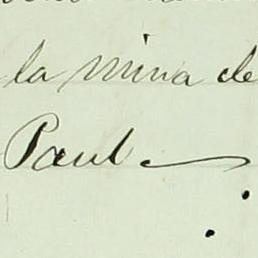 la mina de
Paul